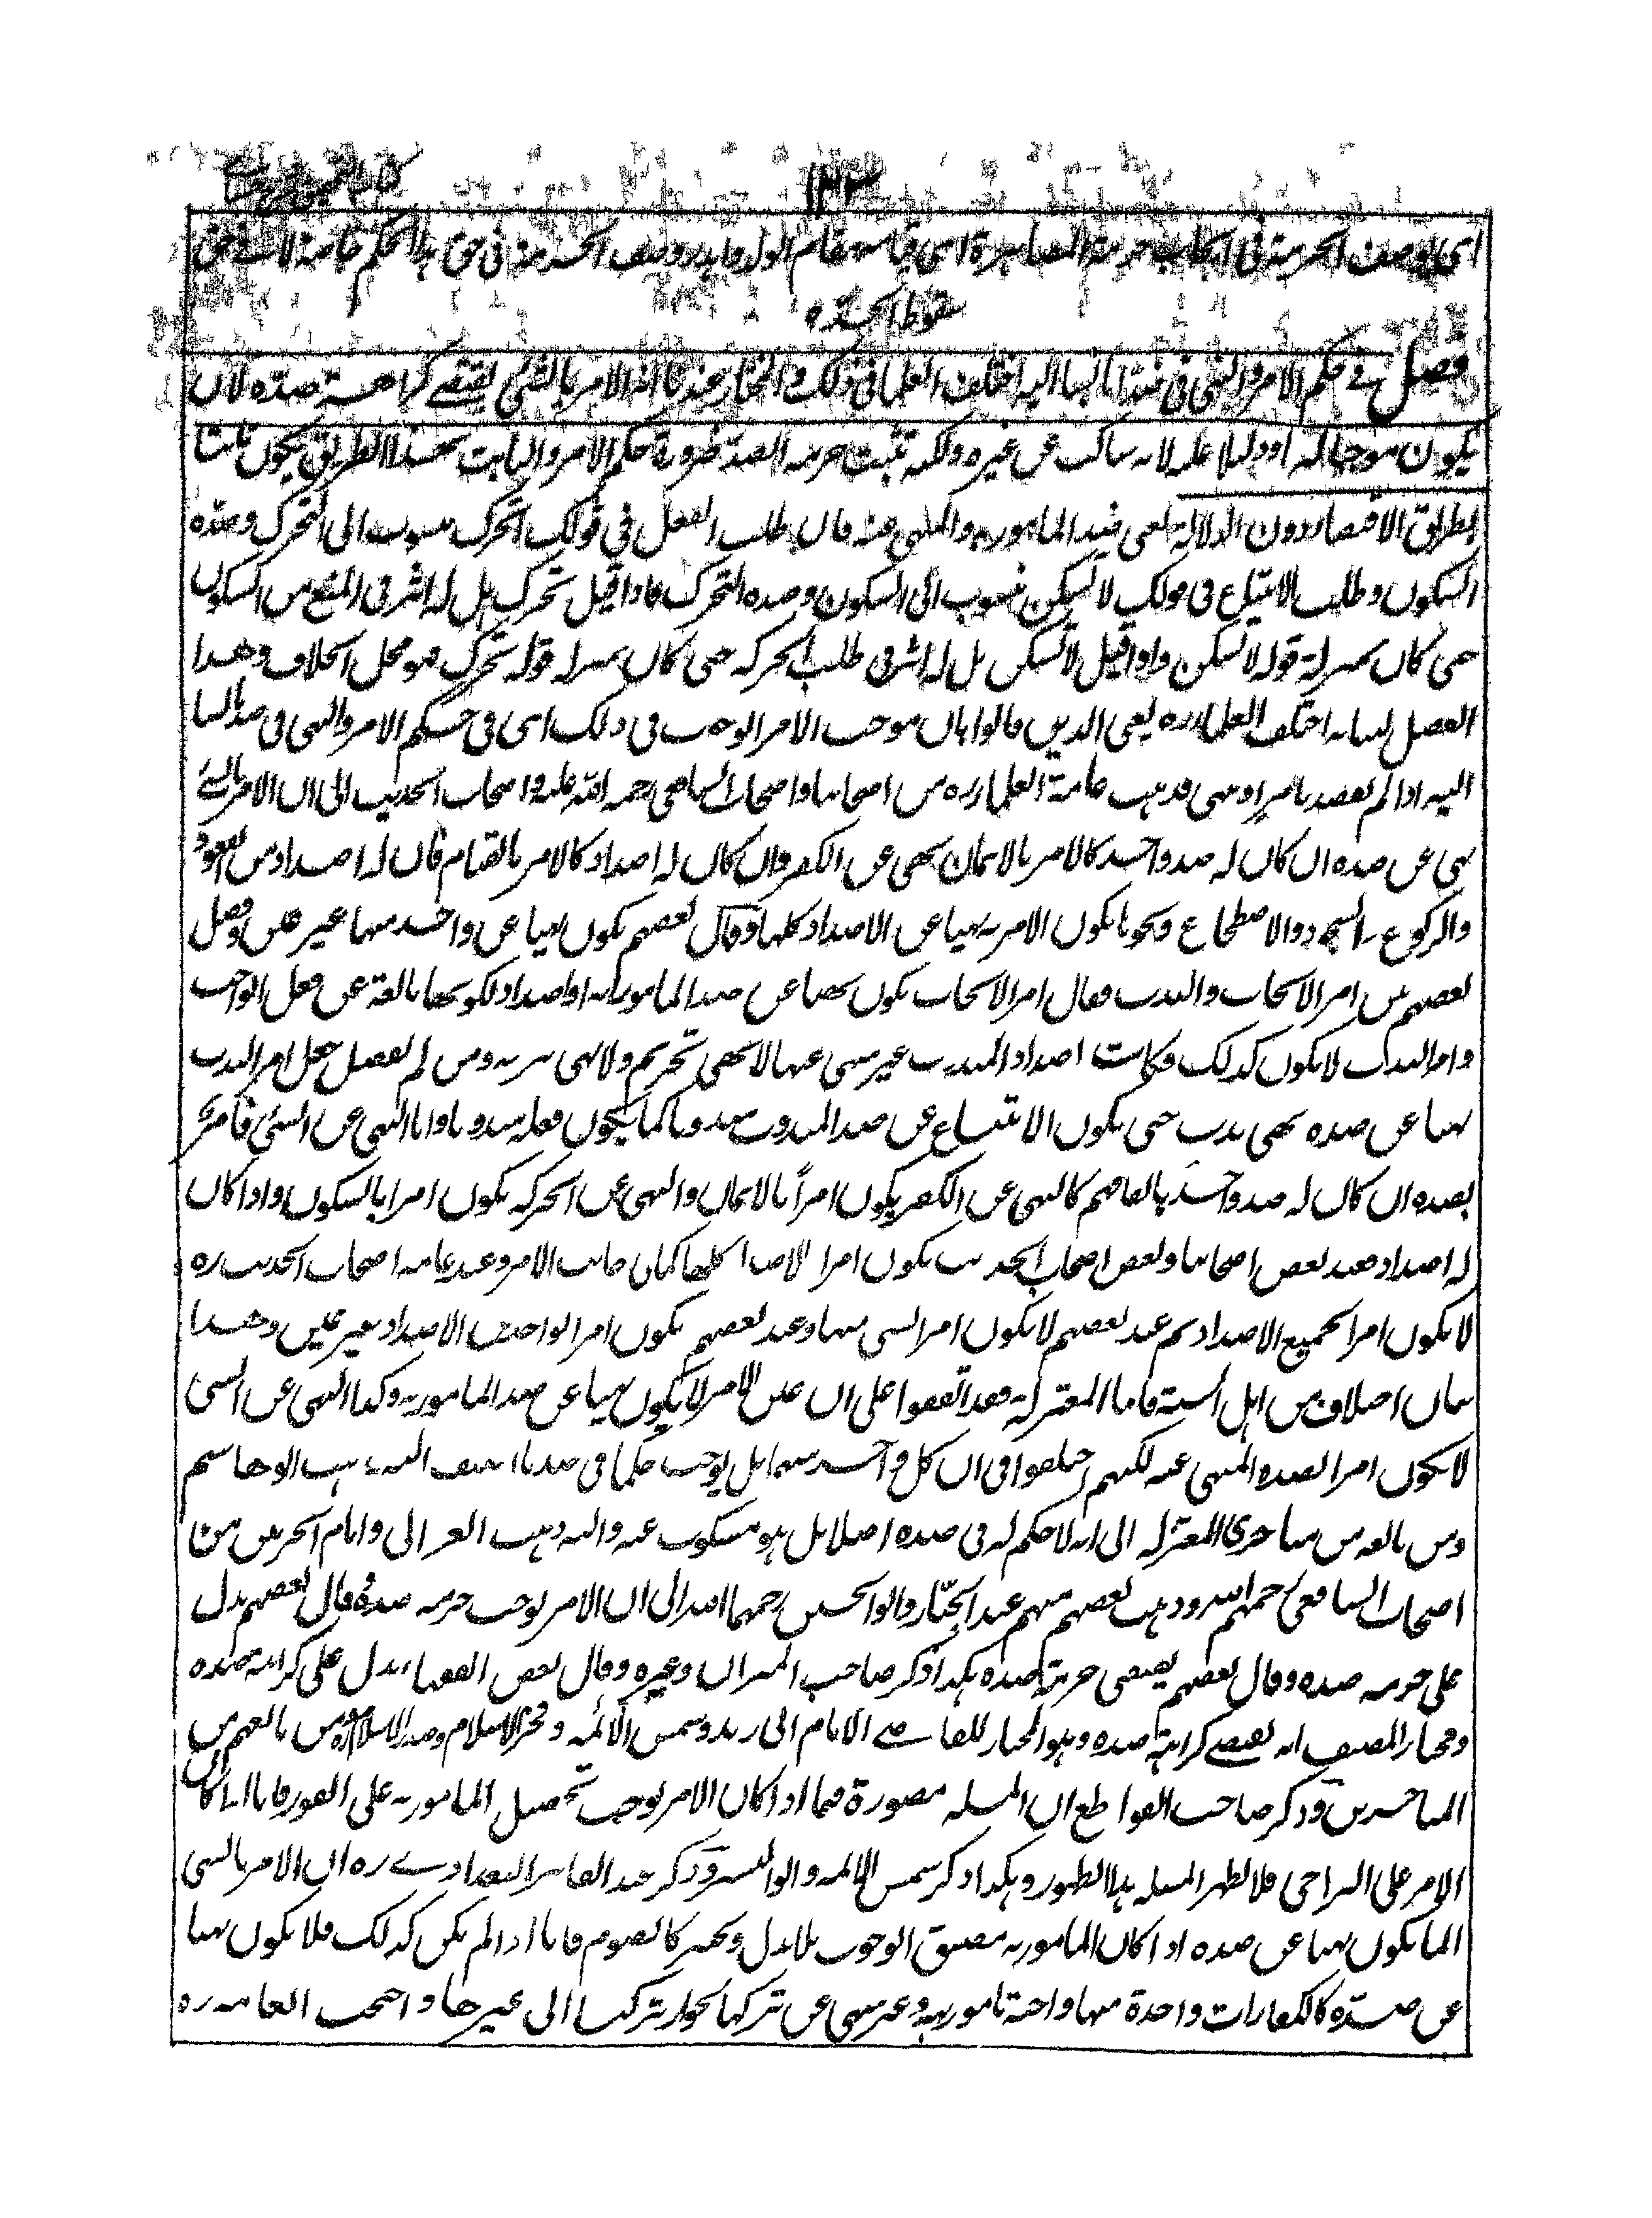 ١٣٢
اى لوصف الحرمية فى ايجاب حرمة المصاهرة اى قيامه مقام الولد واهدر وصف الحرمة منه فى حق هذا الحكم
فصل فى حكم الامر والنهى فى ضد ما نسبا اليه اختلف العلما فى ذلك والمختار عندنا انه الامر بالشى يقتضے كراهية ضده لا ان
يكون موجبا له او دليلا عليه لانه ساكت عن غيره ولكنه تثبت حرمة الضد ضرورة حكم الامر والثابت بهذا الطريق يكون ثابتا
بطريق الاقتضا دون الدلالة يعنى ضد المامور به والمنهى عنه فان طلب الفعل فى قولك تحرك منسوب الى التحرك وضده
السكون وطلب الامتناع فى قولك لا تسكن منسوب الى السكون وضده التحرك فاذا قيل تحرك هل له اثر فى المنع من السكون
حتى كان بمنزلة قوله لا تسكن واذا قيل لا تسكن هل له اثر فى طلب الحركة حتى كان بمنزلة قوله تحرك هو محل الخلاف وهذا
الفصل لبيانه اختلف العلما ره يعنى الذين قالوا بان موجب الامر الوجوب فى ذلك اى فى حكم الامر والنهى فى ضد ما نسبا
اليه اذا لم يقصد بامر او نهى فذهب عامة العلما ره من اصحابنا واصحاب الشافعى رحمه الله عليه واصحاب الحديث الى ان الامر بالشئ
نهى عن ضده ان كان له ضد واحد كالامر بالايمان نهى عن الكفر وان كان له اضداد كالامر بالقيام فان له اضدادا من القعود
والركوع والسجود والاضطجاع ونحوها يكون الامر به نهيا عن الاضداد كلها وقال بعضهم يكون نهيا عن واحد منها غير عين وفصل
بعضهم بين امر الايجاب والندب فقال امر الايجاب يكون نهيا عن ضد المامور به او اضداده لكونها مانعة عن فعل الواجب
وامر الندب لا يكون كذلك فكانت اضداد المندوب غير منهى عنها لا نهى تحريم ولا نهى تنزيه ومن لم يفصل جعل امر الندب
نهيا عن ضده نهى ندب حتى يكون الامتناع عن ضد المندوب مندوبا كما يكون فعله مندوبا واما النهى عن الشئ فامر
بضده ان كان له ضد واحد باتفاقهم كالنهى عن الكفر يكون امراً بالايمان والنهى عن الحركة يكون امرا بالسكون واذا كان
له اضداد فعند بعض اصحابنا وبعض اصحاب الحديث يكون امرا بالاضداد كلها كما فى جانب الامر وعند عامة اصحاب الحديث ره
لا يكون امرا بجميع الاضداد ثم عند بعضهم لا يكون امرا بشى منها وعند بعضهم يكون امرا بواحد من الاضداد بغير عين وهذا
بيان اختلاف بين اهل السنة فاما المعتزلة فقد اتفقوا على ان عين الامر لا يكون نهيا عن ضد المامور به وكذا النهى عن الشى
لا يكون امرا لضده المنهى عنه لكنهم اختلفوا فى ان كل واحد منهما هل يوجب حكما فى ضد ما اضيف اليه فذهب ابو هاشم
ومن تابعه من متاخرى المعتزلة الى انه لا حكم له فى ضده اصلا بل هو مسكوت عنه واليه ذهب الغزالى وامام الحرمين من
اصحاب الشافعى رحمهم الله وذهب بعضهم منهم عبد الجبار وابو الحسين رحمهما الله الى ان الامر يوجب حرمة ضده وقال بعضهم يدل
على حرمة ضده وقال بعضهم يقتضى حرمة ضده هكذا ذكر صاحب الميزان وغيره وقال بعض الفقهاء يدل على كراهة ضده
ومختار المصنف انه يقتضے كراهة ضده وهو المختار للقاضے الامام ابى زيد وشمس الائمة وفخر الاسلام وصدر الاسلام ومن تابعهم من
المتاخرين وذكر صاحب القواطع ان المسئلة مصورة فيما اذا كان الامر يوجب تحصيل المامور به على الفور فاما اذا كان
الامر على التراخى فلا تظهر المسئلة هذا الظهور وهكذا ذكر شمس الائمة وابو اليسر وذكر عبد القاهر البغدادے ره ان الامر بالشى
انما يكون نهيا عن ضده اذا كان المامور به مضيق الوجوب بلا بدل وتخيير كالصوم فاما اذا لم يكن كذلك فلا يكون نهيا
عن ضده كالكفارات واحدة منها واجبة مامور بها وغير منهى عن تركها لجواز تركها الى غيرها واحتجت العامة ره